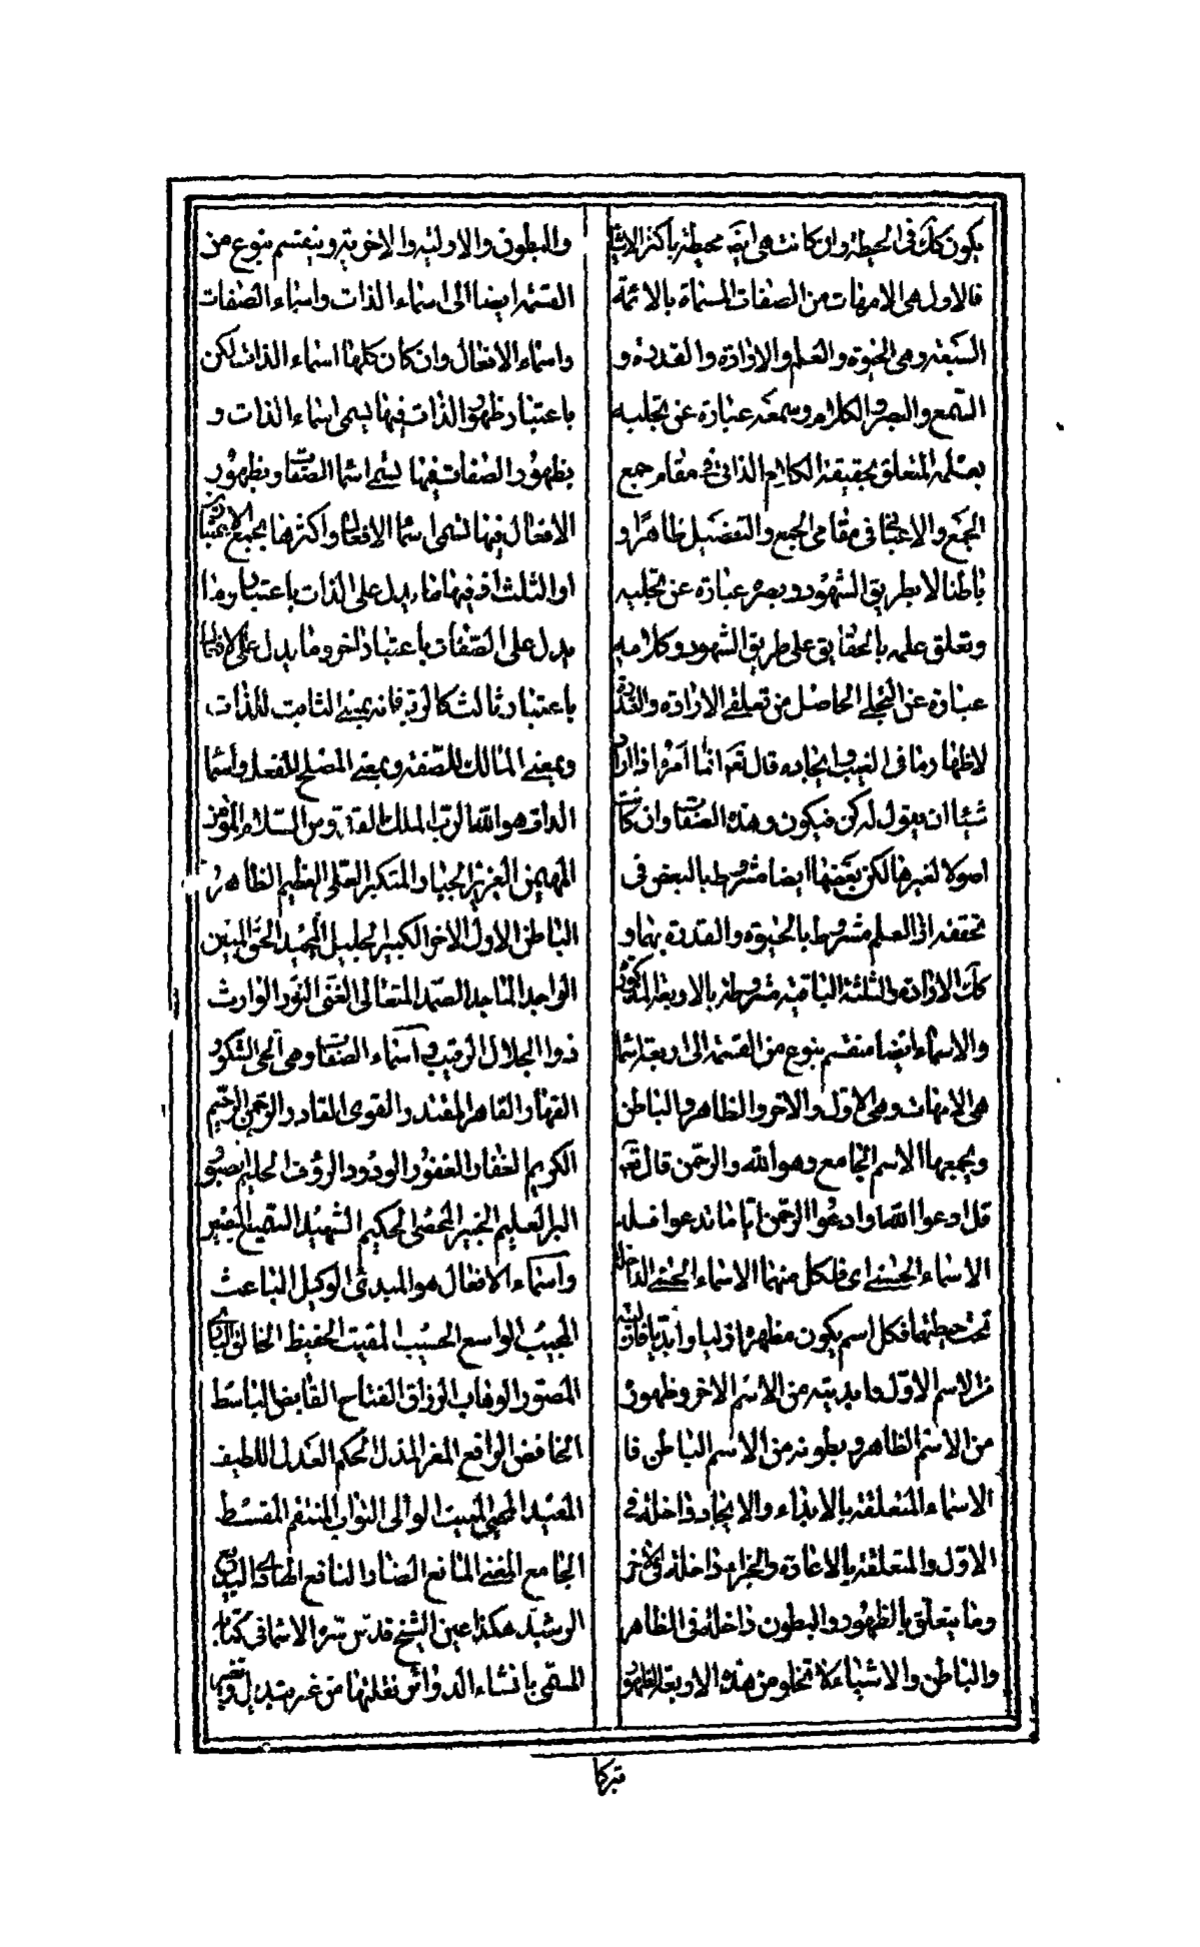 يكون كك فى الحيطة وان كانت هى ايضه محيطة باكثر الاشيا
فالاول هى الامهات من الصفات المسماة بالائمة
السبعة وهى الحيوة والعلم والارادة والقدرة و
السمع والبصر والكلام وسمعه عبارة عن تجليه
بعلمه المتعلق بحقيقة الكلام الذاتى فى مقام جمع
الجمع والاعيانى فى مقامى الجمع والتفصيل ظاهرا و
باطنا لا بطريق الشهود وبصره عبارة عن تجليه
وتعلق علمه بالحقايق على طريق الشهود وكلامه
عبارة عن التجلى الحاصل من تعلقى الارادة والقدرة
لاظهار ما فى الغيب وايجاده قال تعه انما امره اذا اراد
شيئا ان يقول له كن فيكون وهذه الصفات وان كانت
اصولا لغيرها لكن بعضها ايضا مشروط بالبعض فى
تحققه اذ العلم مشروط بالحيوة والقدرة بهما و
كك الارادة والثلثة الباقية مشروطة بالاربعة المذكورة
والاسماء ايضا منقسم بنوع من القسمة الى اربعة اسما
هى الامهات وهى الاول والاخر والظاهر والباطن
ويجمعها الاسم الجامع وهو الله والرحمن قال تعه
قل ادعوا الله او ادعوا الرحمن ايا ما تدعوا فله
الاسماء الحسنى اى فلكل منهما الاسماء الحسنى الداخلة
تحت حيطتها فكل اسم يكون مظهره ازليا وابديا فازليته
من الاسم الاول وابديته من الاسم الاخر وظهوره
من الاسم الظاهر وبطونه من الاسم الباطن فا
الاسماء المتعلقة بالابداء والايجاد داخلة فى
الاول والمتعلقة بالاعادة والجزاء داخلة فى الاخر
وما يتعلق بالظهور والبطون داخلة فى الظاهر
والباطن والاشياء لا تخلو من هذه الاربعة الظهور
والبطون والاولية والاخرية وينقسم بنوع من
القسمة ايضا الى اسماء الذات واسماء الصفات
واسماء الافعال وان كان كلها اسماء الذات لكن
باعتبار ظهور الذات فيها يسمى اسماء الذات و
بظهور الصفات فيها يسمى اسما الصفات وبظهور
الافعال فيها تسمى اسما الافعال واكثرها يجمع الاعتبارين
او الثلث اذ فيها ما يدل على الذات باعتبار وما
يدل على الصفات باعتبار اخر وما يدل على الافعال
باعتبار ثالث كالرب فانه بمعنى الثابت للذات
وبمعنى المالك للصفة وبمعنى المصلح للفعل واسما
الذات هو الله الرب الملك القدوس السلام المؤمن
المهيمن العزيز الجبار المتكبر العلى العظيم الظاهر
الباطن الاول الاخر الكبير الجليل المجيد الحق المبين
الواجد الماجد الصمد المتعالى الغنى النور الوارث
ذو الجلال الرقيب واسماء الصفات وهى الحى الشكور
القهار القاهر المقتدر القوى القادر الرحمن الرحيم
الكريم الغفار الغفور الودود الرؤف الحليم الصبور
البر العليم الخبير المحصى الحكيم الشهيد السميع البصير
واسماء الافعال هو المبدئ الوكيل الباعث
المجيب الواسع الحسيب المقيت الحفيظ الخالق البارئ
المصور الوهاب الرزاق الفتاح القابض الباسط
الخافض الرافع المعز المذل الحكم العدل اللطيف
المعيد المحيى المميت الوالى التواب المنتقم المقسط
الجامع المغنى المانع الضار النافع الهادى البديع
الرشيد هكذا عين الشيخ قدس سره الاسما فى كتابه
المسمى بانشاء الدوائر نقلتها من غير تبديل وتغيير
تبركا